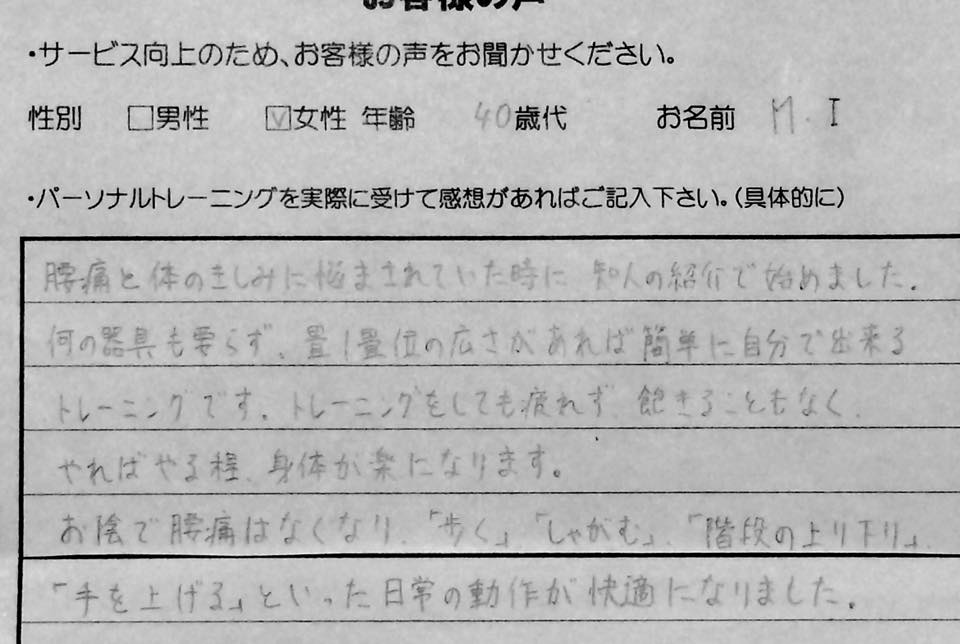 お客様の声
・サービス向上のため、お客様の声をお聞かせください。
性別 □男性 ☑女性 年齢 40歳代 お名前 M.I
・パーソナルトレーニングを実際に受けて感想があればご記入下さい。(具体的に)
腰痛と体のきしみに悩まされていた時に 知人の紹介で始めました。
何の器具も要らず、畳1畳位の広さがあれば簡単に自分で出来る
トレーニングです。トレーニングをしても疲れず、飽きることもなく、
やればやる程、身体が楽になります。
お陰で腰痛はなくなり、「歩く」「しゃがむ」、「階段の上り下り」、
「手を上げる」といった日常の動作が快適になりました。